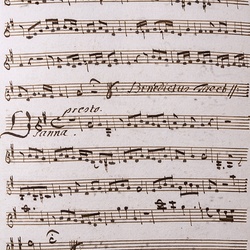 Benedictus tacet ||
presto.
Osanna.